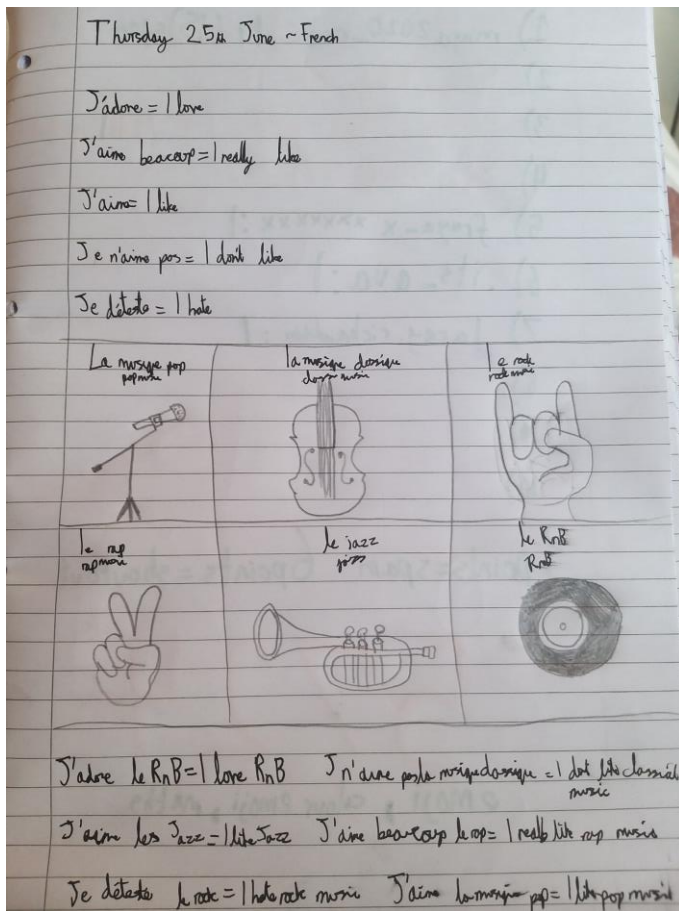 Thursday 25th June ~ French
J'adore = I love
J'aime beacoup = I really like
J'aime = I like
Je n'aime pas = I don't like
Je déteste = I hate
La musique pop
pop music
la musique classique
classic music
le rock
rock music
le rap
rap music
le jazz
jazz
le RnB
RnB
J'adore le RnB = I love RnB
J n'aime pas la musique classique = I dont like classical music
J'aime les Jazz = I like Jazz
J'aime beaucoup le rap = I really like rap music
Je déteste le rock = I hate rock music
J'aime la musique pop = I like pop music